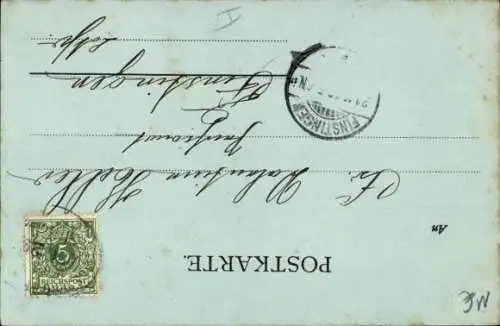 POSTKARTE.
An
Fr. Valentine Heller
Pensionat
Finstingen
Lothr.
FINSTINGEN
5
REICHSPOST
I